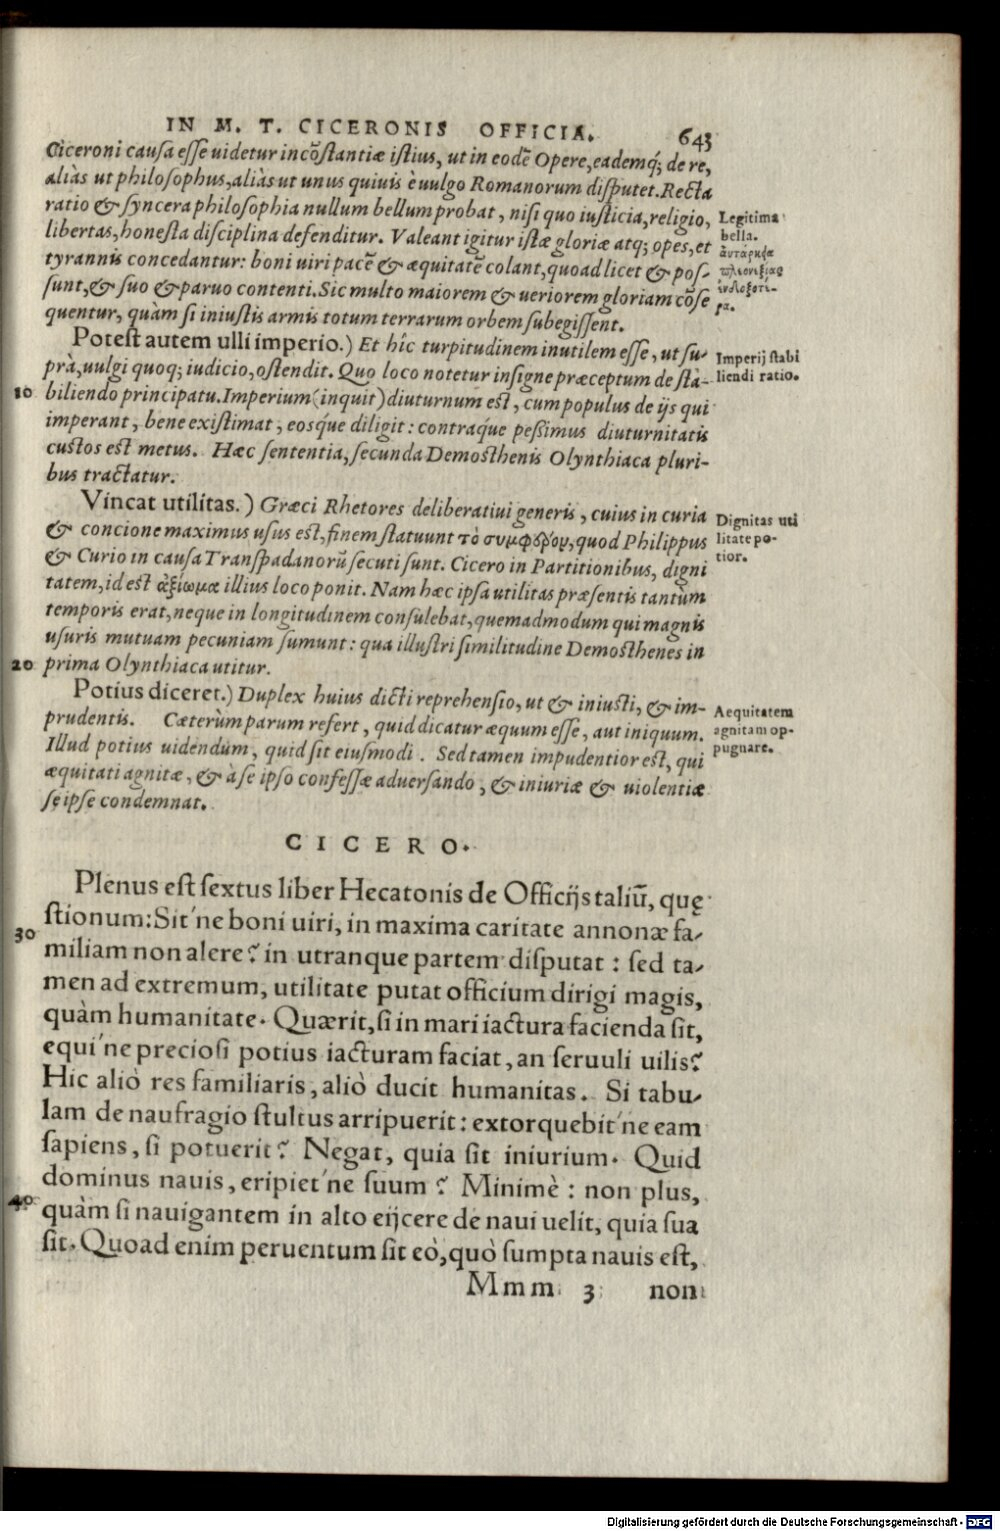 IN M. T. CICERONIS OFFICIA. 643
Ciceroni causa esse uidetur incōstantiæ istius, ut in eodē Opere, eademq́; de re,
aliàs ut philosophus, aliàs ut unus quiuis è uulgo Romanorum disputet. Recta
ratio & syncera philosophia nullum bellum probat, nisi quo iusticia, religio,
libertas, honesta disciplina defenditur. Valeant igitur istæ gloriæ atq; opes, et
tyrannis concedantur: boni uiri pacē & æquitatē colant, quoad licet & pos-
sunt, & suo & paruo contenti. Sic multo maiorem & ueriorem gloriam cōse
quentur, quàm si iniustis armis totum terrarum orbem subegissent.
Legitima
bella.
ἀυτάρκεια
πλεονεξίας
Potest autem ulli imperio.) Et hîc turpitudinem inutilem esse, ut su-
prà, uulgi quoq; iudicio, ostendit. Quo loco notetur insigne præceptum de sta-
10 biliendo principatu. Imperium (inquit) diuturnum est, cum populus de ijs qui
imperant, bene existimat, eosq́ue diligit: contraq́ue pessimus diuturnitatis
custos est metus. Hæc sententia, secunda Demosthenis Olynthiaca pluri-
bus tractatur.
Imperij stabi
liendi ratio.
Vincat utilitas.) Græci Rhetores deliberatiui generis, cuius in curia
& concione maximus usus est, finem statuunt τὸ συμφέρον, quod Philippus
& Curio in causa Transpadanorū secuti sunt. Cicero in Partitionibus, digni
tatem, id est ἀξίωμα illius loco ponit. Nam hæc ipsa utilitas præsentis tantùm
temporis erat, neque in longitudinem consulebat, quemadmodum qui magnis
usuris mutuam pecuniam sumunt: qua illustri similitudine Demosthenes in
20 prima Olynthiaca utitur.
Dignitas uti
litate po-
tior.
Potius diceret.) Duplex huius dicti reprehensio, ut & iniusti, & im-
prudentis. Cæterùm parum refert, quid dicatur æquum esse, aut iniquum.
Illud potius uidendum, quid sit eiusmodi. Sed tamen impudentior est, qui
æquitati agnitæ, & à se ipso confessæ aduersando, & iniuriæ & uiolentiæ
se ipse condemnat.
Aequitatem
agnitam op-
pugnare.
CICERO.
Plenus est sextus liber Hecatonis de Officijs taliū, quę
30 stionum: Sit'ne boni uiri, in maxima caritate annonæ fa-
miliam non alere? in utranque partem disputat: sed ta-
men ad extremum, utilitate putat officium dirigi magis,
quàm humanitate. Quærit, si in mari iactura facienda sit,
equi'ne preciosi potius iacturam faciat, an seruuli uilis?
Hic aliò res familiaris, aliò ducit humanitas. Si tabu-
lam de naufragio stultus arripuerit: extorquebit'ne eam
sapiens, si potuerit? Negat, quia sit iniurium. Quid
dominus nauis, eripiet'ne suum? Minimè: non plus,
40 quàm si nauigantem in alto eijcere de naui uelit, quia sua
sit. Quoad enim peruentum sit eò, quò sumpta nauis est,
Mmm 3 non
Digitalisierung gefördert durch die Deutsche Forschungsgemeinschaft - DFG